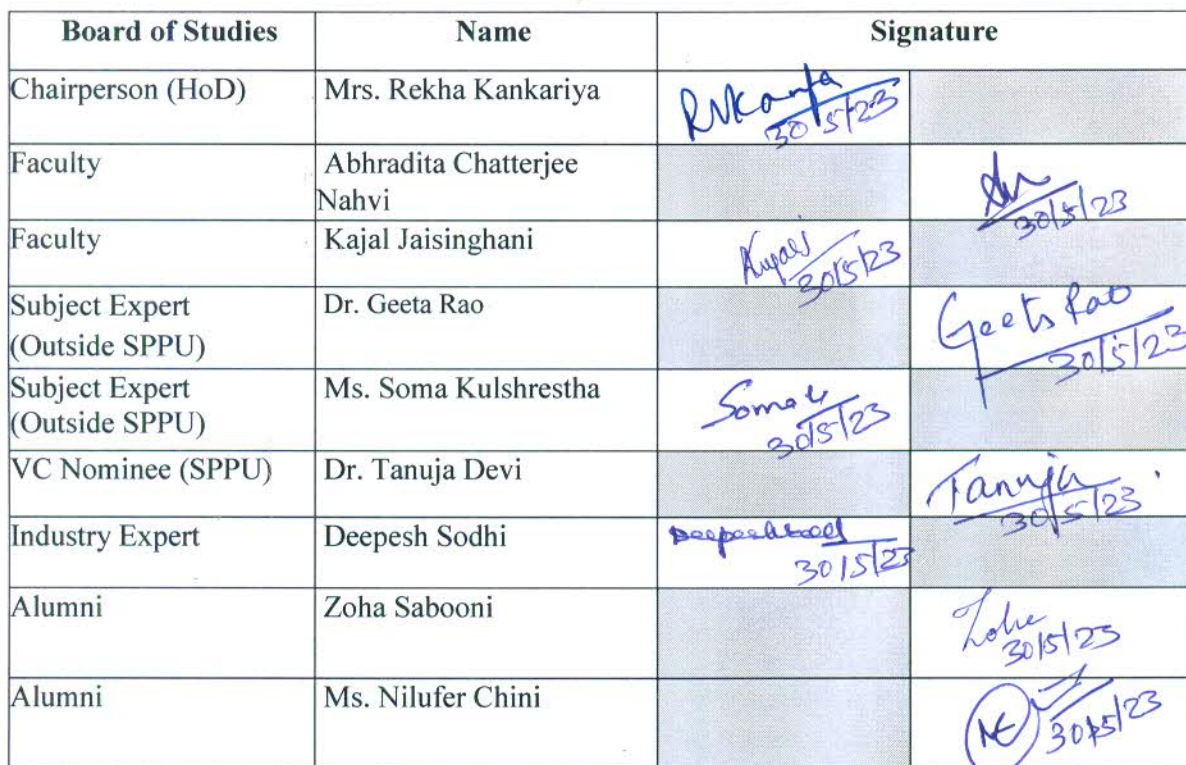 Board of Studies Name Signature
Chairperson (HoD) Mrs. Rekha Kankariya
30/5/23
Faculty Abhradita Chatterjee
Nahvi
30/5/23
Faculty Kajal Jaisinghani
30/5/23
Subject Expert Dr. Geeta Rao Geeta Rao
(Outside SPPU) 30/5/23
Subject Expert Ms. Soma Kulshrestha
(Outside SPPU) 30/5/23
VC Nominee (SPPU) Dr. Tanuja Devi Tanuja
30/5/23
Industry Expert Deepesh Sodhi
30/5/23
Alumni Zoha Sabooni
30/5/23
Alumni Ms. Nilufer Chini
30/5/23